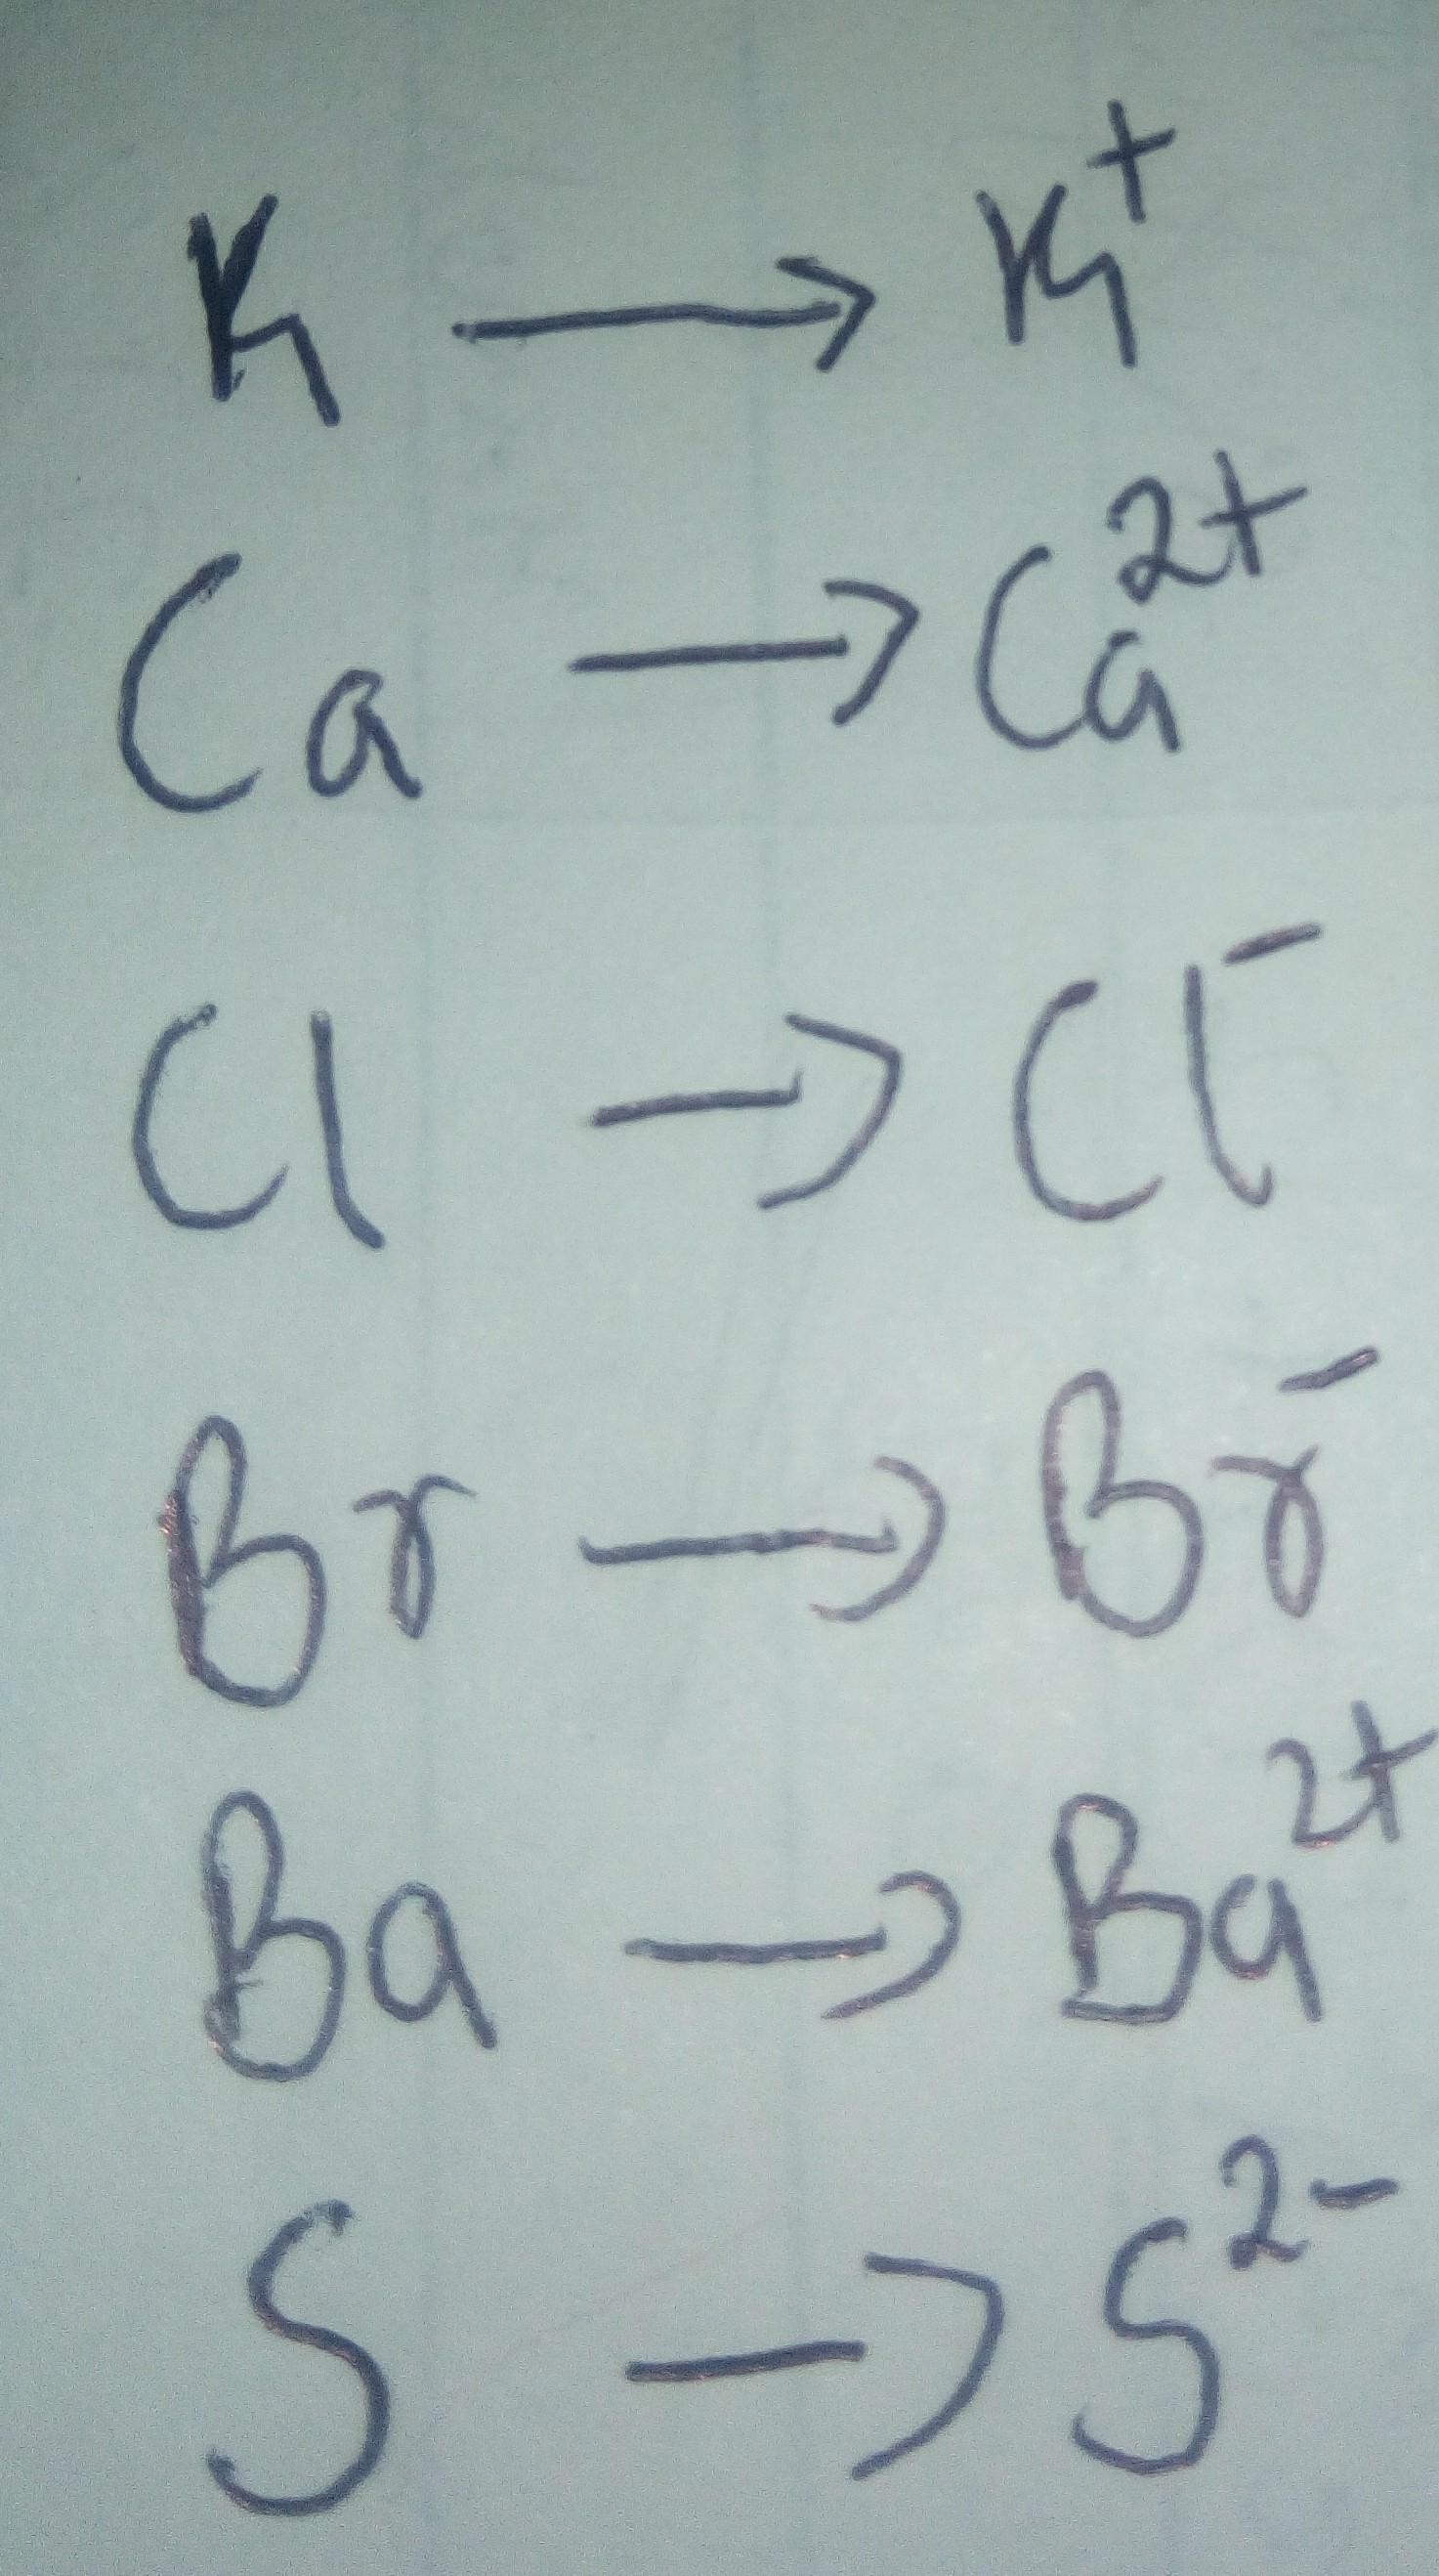 K → K⁺
Ca → Ca²⁺
Cl → Cl⁻
Br → Br⁻
Ba → Ba²⁺
S → S²⁻